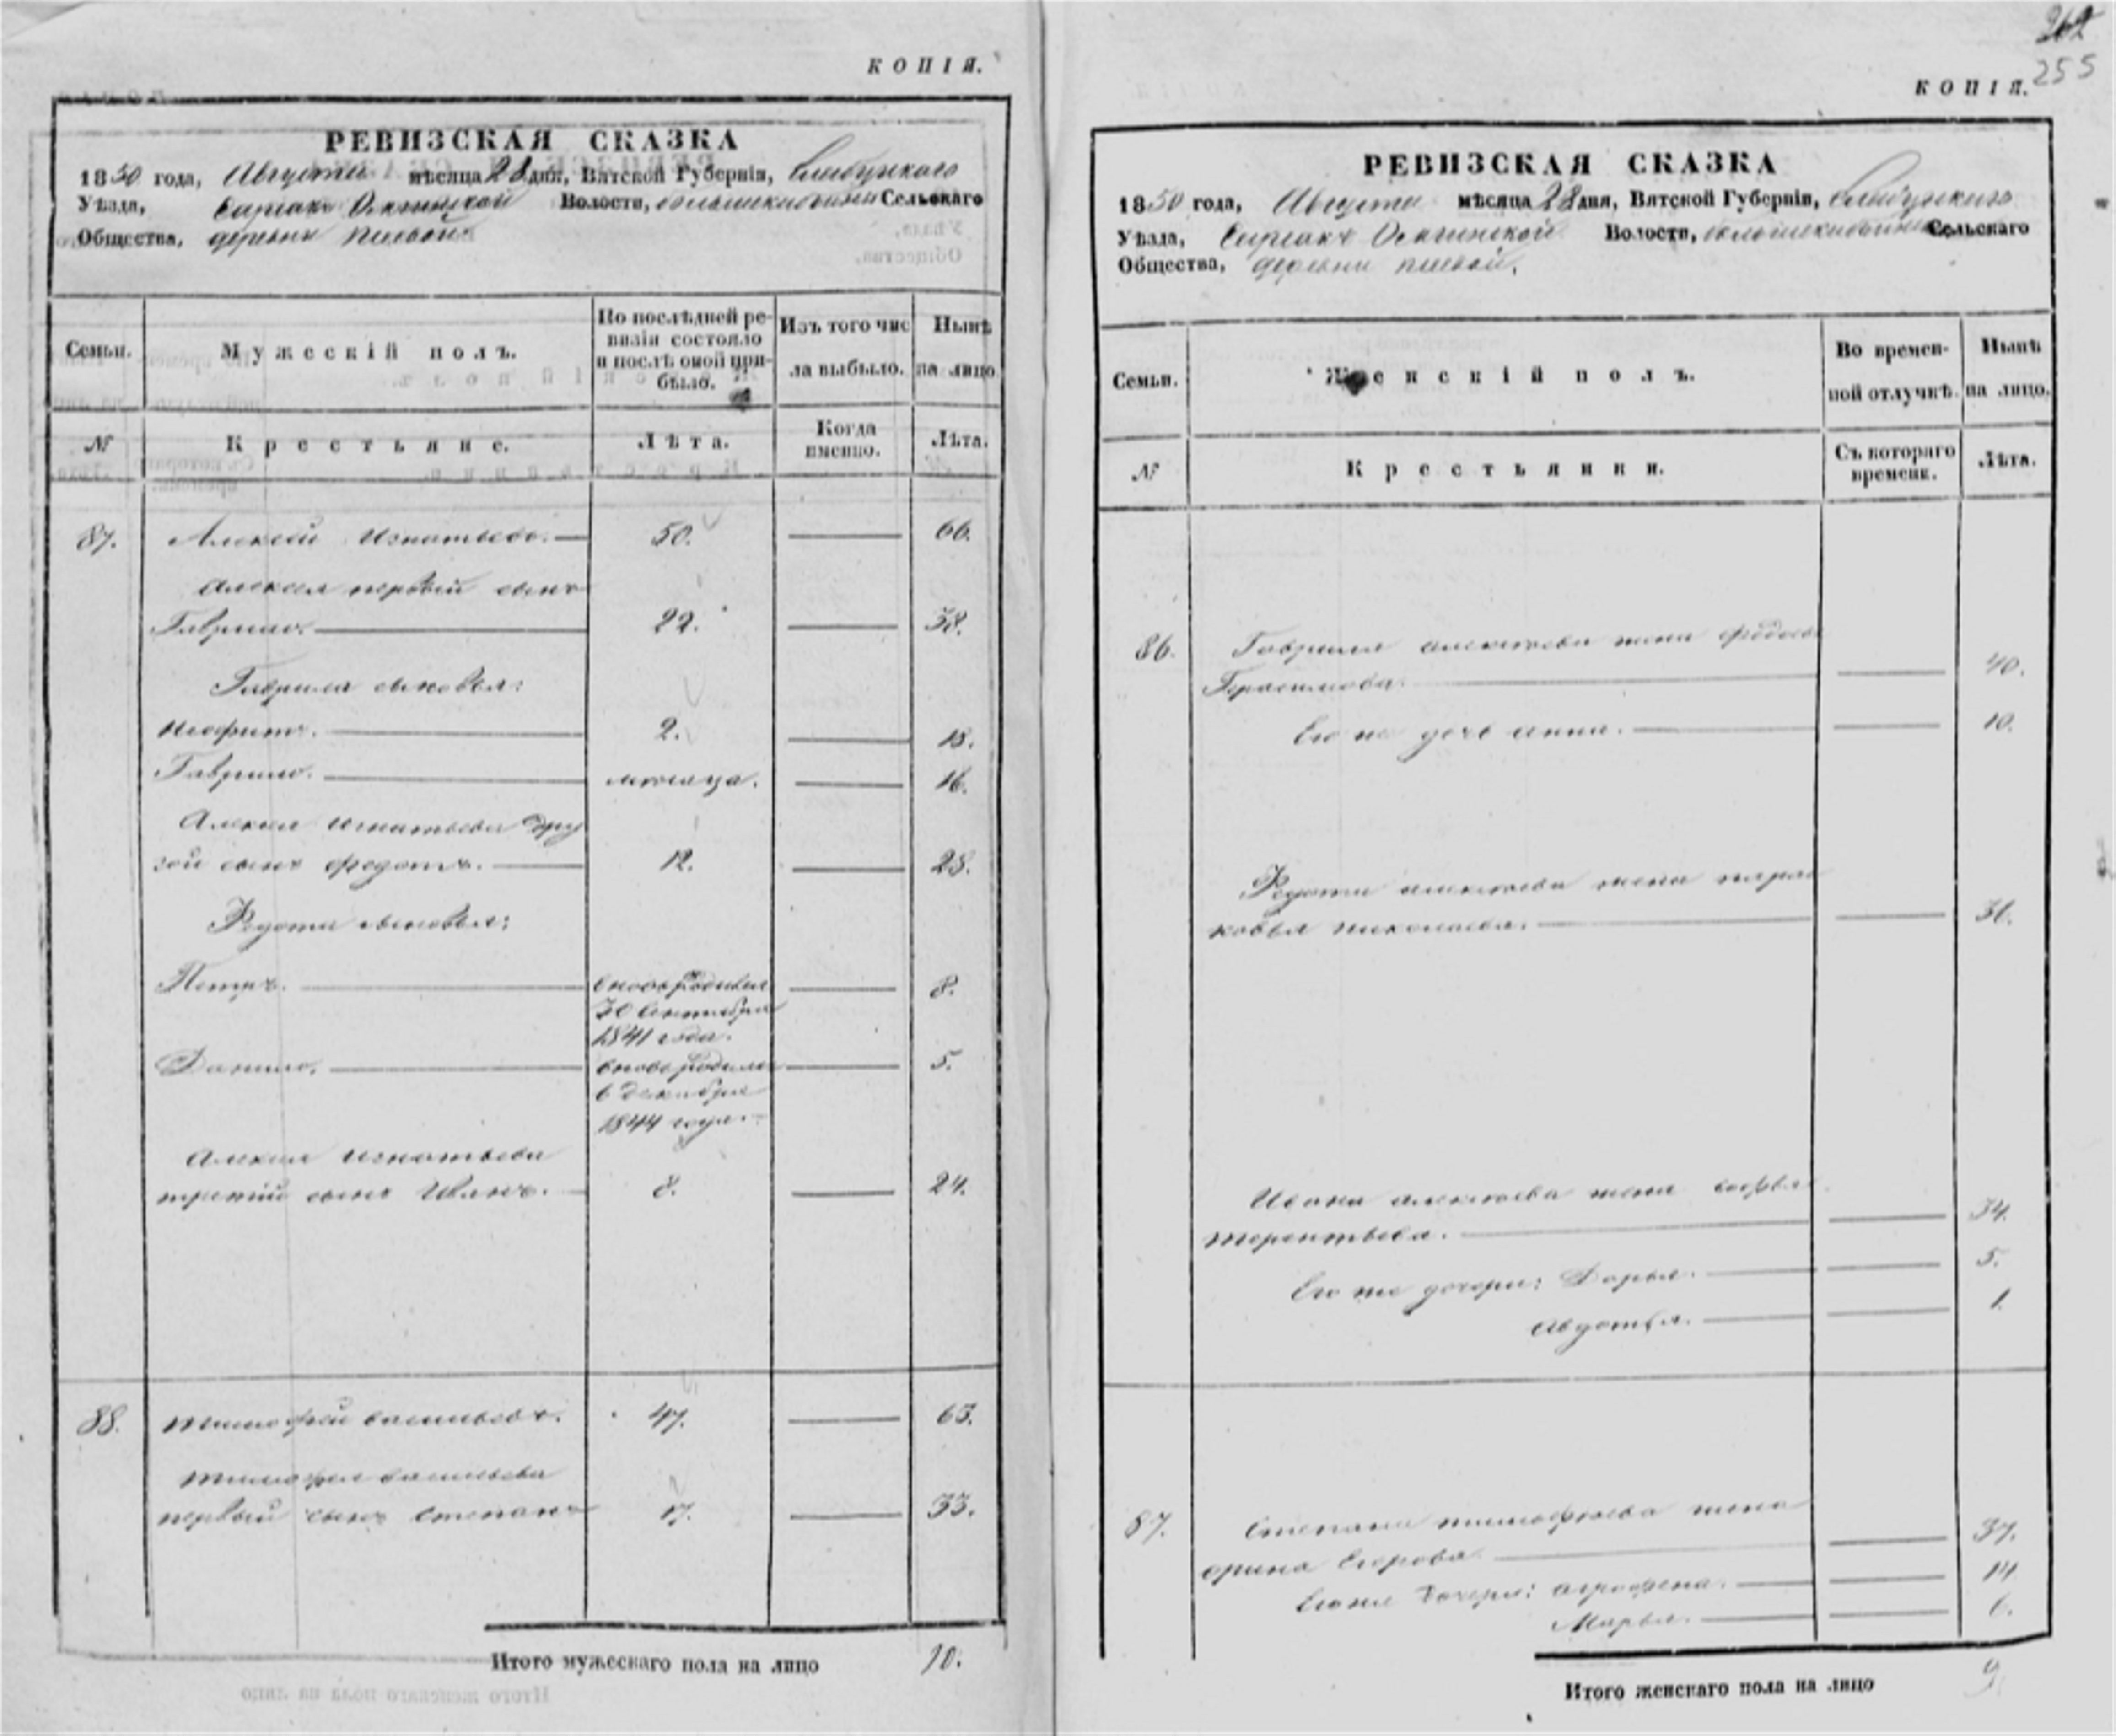 КОПІЯ.
РЕВИЗСКАЯ СКАЗКА
1850 года, Августа мѣсяца 28 дня, Вятской Губерніи, Елабужского
Уѣзда, Волости, Сельскаго
Общества, деревни
Семьи. Мужескій полъ. По послѣдней ре-визіи состояло и послѣ оной при-было. Изъ того чис ла выбыло. Нынѣ на лицо
№ Крестьяне. Лѣта. Когда именно. Лѣта.
87. Алексей Игнатьевъ. 50. 66.
Алексея первый сынъ
Гаврило. 22. 38.
Гаврила сыновья:
Неофитъ. 2. 18.
Гаврило. месяца. 16.
Алексея Игнатьева дру
гой сынъ Федотъ. 12. 28.
Федота сыновья:
Петръ. вновь родился 8.
30 Сентября
1841 года.
Данило. вновь родился 5.
6 декабря
1844 года.
Алексея Игнатьева
третий сынъ Иванъ. 8. 24.
88. Тимофей Васильевъ. 47. 63.
Тимофея Васильева
первый сынъ Степанъ 17. 33.
Итого мужескаго пола на лицо 10.
262
255
КОПІЯ.
РЕВИЗСКАЯ СКАЗКА
1850 года, Августа мѣсяца 28 дня, Вятской Губерніи, Елабужского
Уѣзда, Волости, Сельскаго
Общества, деревни
Семьи. Женскій полъ. Во времен-ной отлучкѣ. Нынѣ на лицо.
№ Крестьянки. Съ котораго времени. Лѣта.
86. Гаврила алексѣева жена федосья
Герасимова. 40.
Его же дочь анна. 10.
Федота алексѣева жена парас
ковья николаева. 36.
Ивана алексѣева жена софья
терентьева. 34.
Его же дочери: Дарья. 5.
авдотья. 1.
87. Степана тимофѣева жена
орина Егорова. 37.
Его же дочери: аграфена. 14
Марья. 6.
Итого женскаго пола на лицо 9.